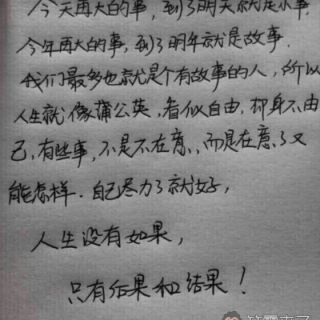 今天再大的事,到了明天就是小事.
今年再大的事,到了明年就是故事.
我们最多也就是个有故事的人,所以
人生就像蒲公英,看似自由,却身不由
己,有些事,不是不在意,而是在意了又
能怎样.自己尽力了就好,
人生没有如果,
只有后果和结果!